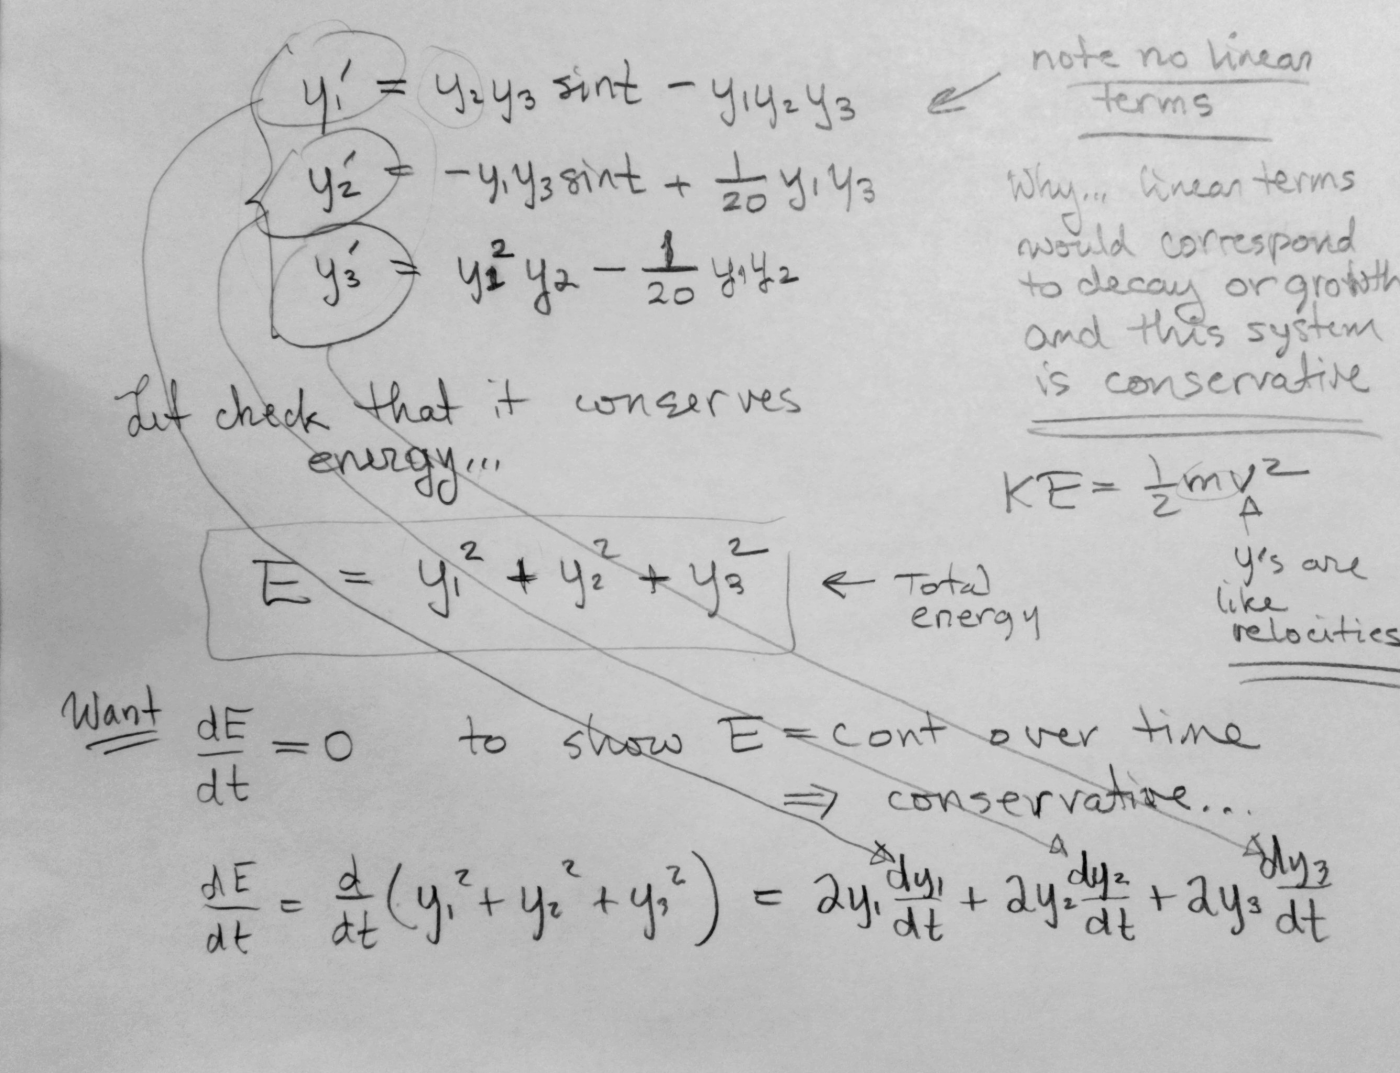 y₁′ = y₂y₃ sint − y₁y₂y₃
y₂′ = −y₁y₃ sint + 1/20 y₁y₃
y₃′ = y₁² y₂ − 1/20 y₁y₂
note no linear
terms
Why... linear terms
would correspond
to decay or growth
and this system
is conservative
Let check that it conserves
energy...
KE = 1/2 mv²
y's are
like
velocities
E = y₁² + y₂² + y₃²
← Total
energy
Want dE/dt = 0 to show E = cont over time
⇒ conservative...
dE/dt = d/dt (y₁² + y₂² + y₃²) = 2y₁ dy₁/dt + 2y₂ dy₂/dt + 2y₃ dy₃/dt